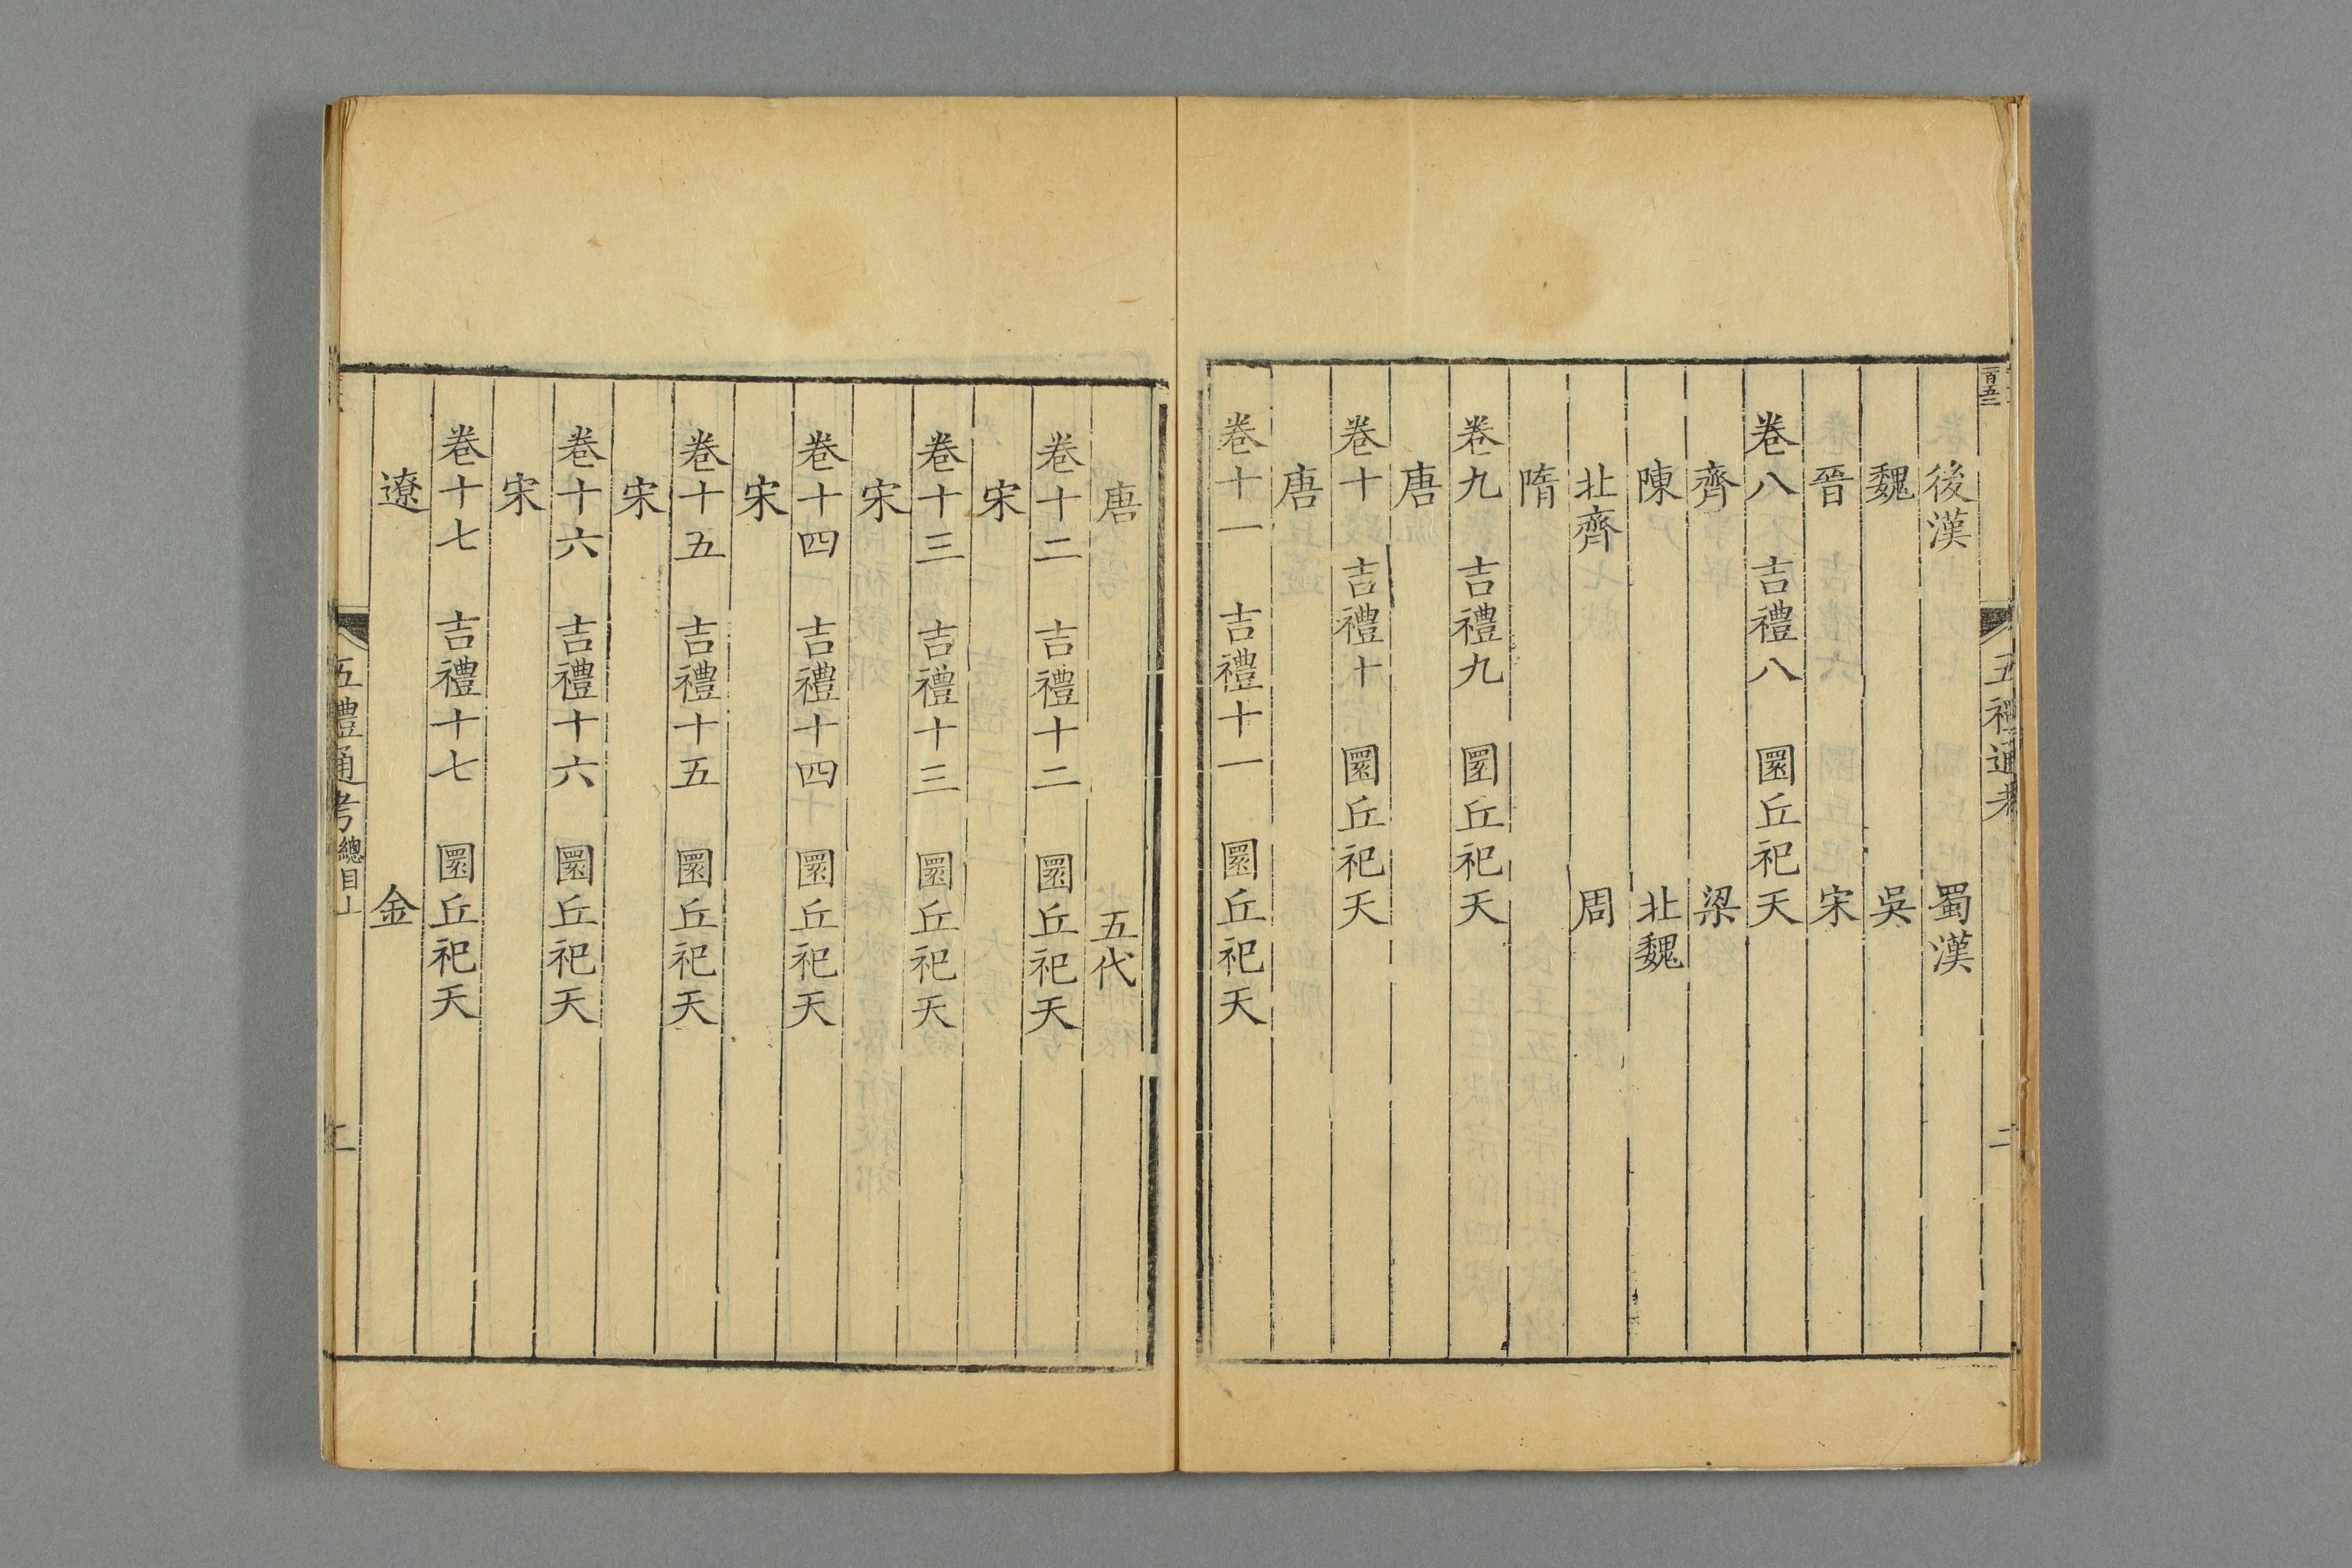 百五二
五禮通考
二
後漢 蜀漢
魏 吳
晉 宋
卷八 吉禮八 圜丘祀天
齊 梁
陳 北魏
北齊 周
隋
卷九 吉禮九 圜丘祀天
唐
卷十 吉禮十 圜丘祀天
唐
卷十一 吉禮十一 圜丘祀天
唐 五代
卷十二 吉禮十二 圜丘祀天
宋
卷十三 吉禮十三 圜丘祀天
宋
卷十四 吉禮十四 圜丘祀天
宋
卷十五 吉禮十五 圜丘祀天
宋
卷十六 吉禮十六 圜丘祀天
宋
卷十七 吉禮十七 圜丘祀天
遼 金
五禮通考 總目上